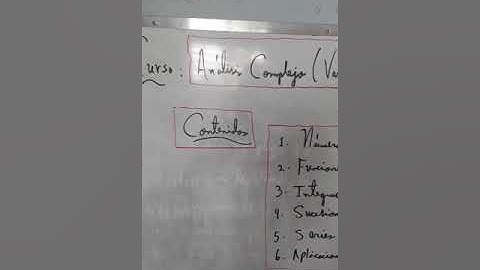 Curso: Análisis Complejo (Va
Contenidos
1. Númer
2. Funcion
3. Integra
4. Sucesion
5. Series
6. Aplicacion